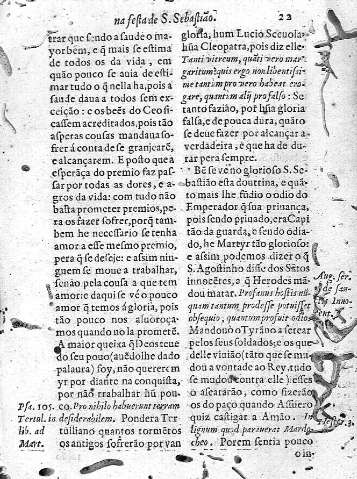 na festa de S. Sebastião. 22
trar que sendo a saude o ma
yor bem, e q̃ mais se estima
de todos os da vida, em
quão pouco se auia de esti-
mar tudo o q̃ nella ha, pois a
saude daua a todos sem ex-
ceição: e os bẽs do Ceo si-
cassem acreditados, pois tão
asperas cousas mandaua so-
frer á conta de se grangearẽ,
e alcançarem. E posto que a
esperãça do premio faz pas-
sar por todas as dores, e a-
gros da vida: com tudo não
basta prometer premios, pe-
ra os fazer sofrer, porq̃ tam-
bem he necessario se tenha
amor a esse mesmo premio,
pera q̃ se deseje: e assim nin-
guem se moue a trabalhar,
senão pela cousa a que tem
amor: e daqui se vé o pouco
amor q̃ temos á gloria, pois
tão pouco nos aluoroça-
mos quando no la prometẽ.
A maior queixa q̃
do seu pouo
palaura) foy, não quererem
yr por diante na conquista,
por não trabalhar hũ pou-
Psa. 105. co. Pro nihilo habuerunt terram
Tertul. lo. desiderabilem. Pondera Ter-
lib. ad tulliano quantos tormẽtos
Mart. os antigos sofrerão por van
gloria, hum Lucio Sceuola,
hũa Cleopatra, pois diz elle.
Tanti vitreum, quãti vero mar-
garitum: quis ergo non libentissi-
me tantum pro vero habeat ero-
gare, quantum alij pro falso: Se
tanto fazião, por hũa gloria
falsa, e de pouca dura, quãto
se deue fazer por alcançar a
verdadeira, e que ha de du-
rar pera sempre.
Bẽ se vé no glorioso S. Se-
bastião esta doutrina, e quã-
to mais lhe sudio o odio do
Emperador q̃ sua priuança,
pois sendo priuado, era Capi
tão da guarda, e sendo odia-
do, he Martyr tão glorioso:
e assim podemos dizer o q̃
S. Agostinho disse dos Sãtos
innocẽtes, a q̃ Herodes mã-
dou matar. Profanus hostis nũ-
quam tantum prodesse potuisset
obsequio, quantum profuit odio.
Mandou o Tyrãno a setear
pelos seus soldados; e os que
delle viuião (tãto que se mu-
dou a vontade ao Rey, tudo
se muda contra elle) esses
o asetarão, como fizerão
os do paço quando Assuero
quiz castigar a Amão. In
lignum quod parauerat Mardo-
cheo. Porem sentia pouco
Aug. ser.
de san-
ctis Inno-
cent.
Hester. 3.